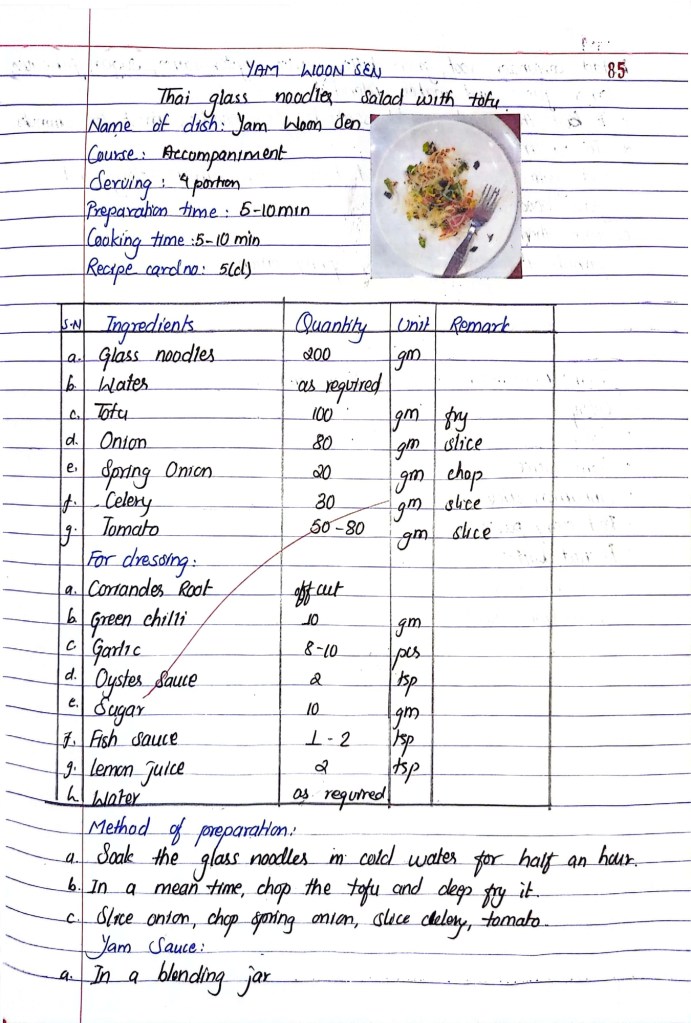 85
YAM WOON SEN
Thai glass noodles salad with tofu.
Name of dish: Yam Woon Sen
Course: Accompaniment
Serving: 4 portion
Preparation time: 5-10min
Cooking time: 5-10 min
Recipe card no: 5(d)
S.N Ingredients Quantity Unit Remark
a. Glass noodles 200 gm
b. Water as required
c. Tofu 100 gm fry
d. Onion 80 gm slice
e. Spring Onion 20 gm chop
f. Celery 30 gm slice
g. Tomato 50-80 gm slice
For dressing:
a. Corriander Root off cut
b. Green chilli 10 gm
c. Garlic 8-10 pcs
d. Oyster Sauce 2 tsp
e. Sugar 10 gm
f. Fish sauce 1-2 tsp
g. Lemon juice 2 tsp
h. Water as required
Method of preparation:
a. Soak the glass noodles in cold water for half an hour.
b. In a mean time, chop the tofu and deep fry it.
c. Slice onion, chop spring onion, slice celery, tomato.
Yam Sauce:
a. In a blending jar